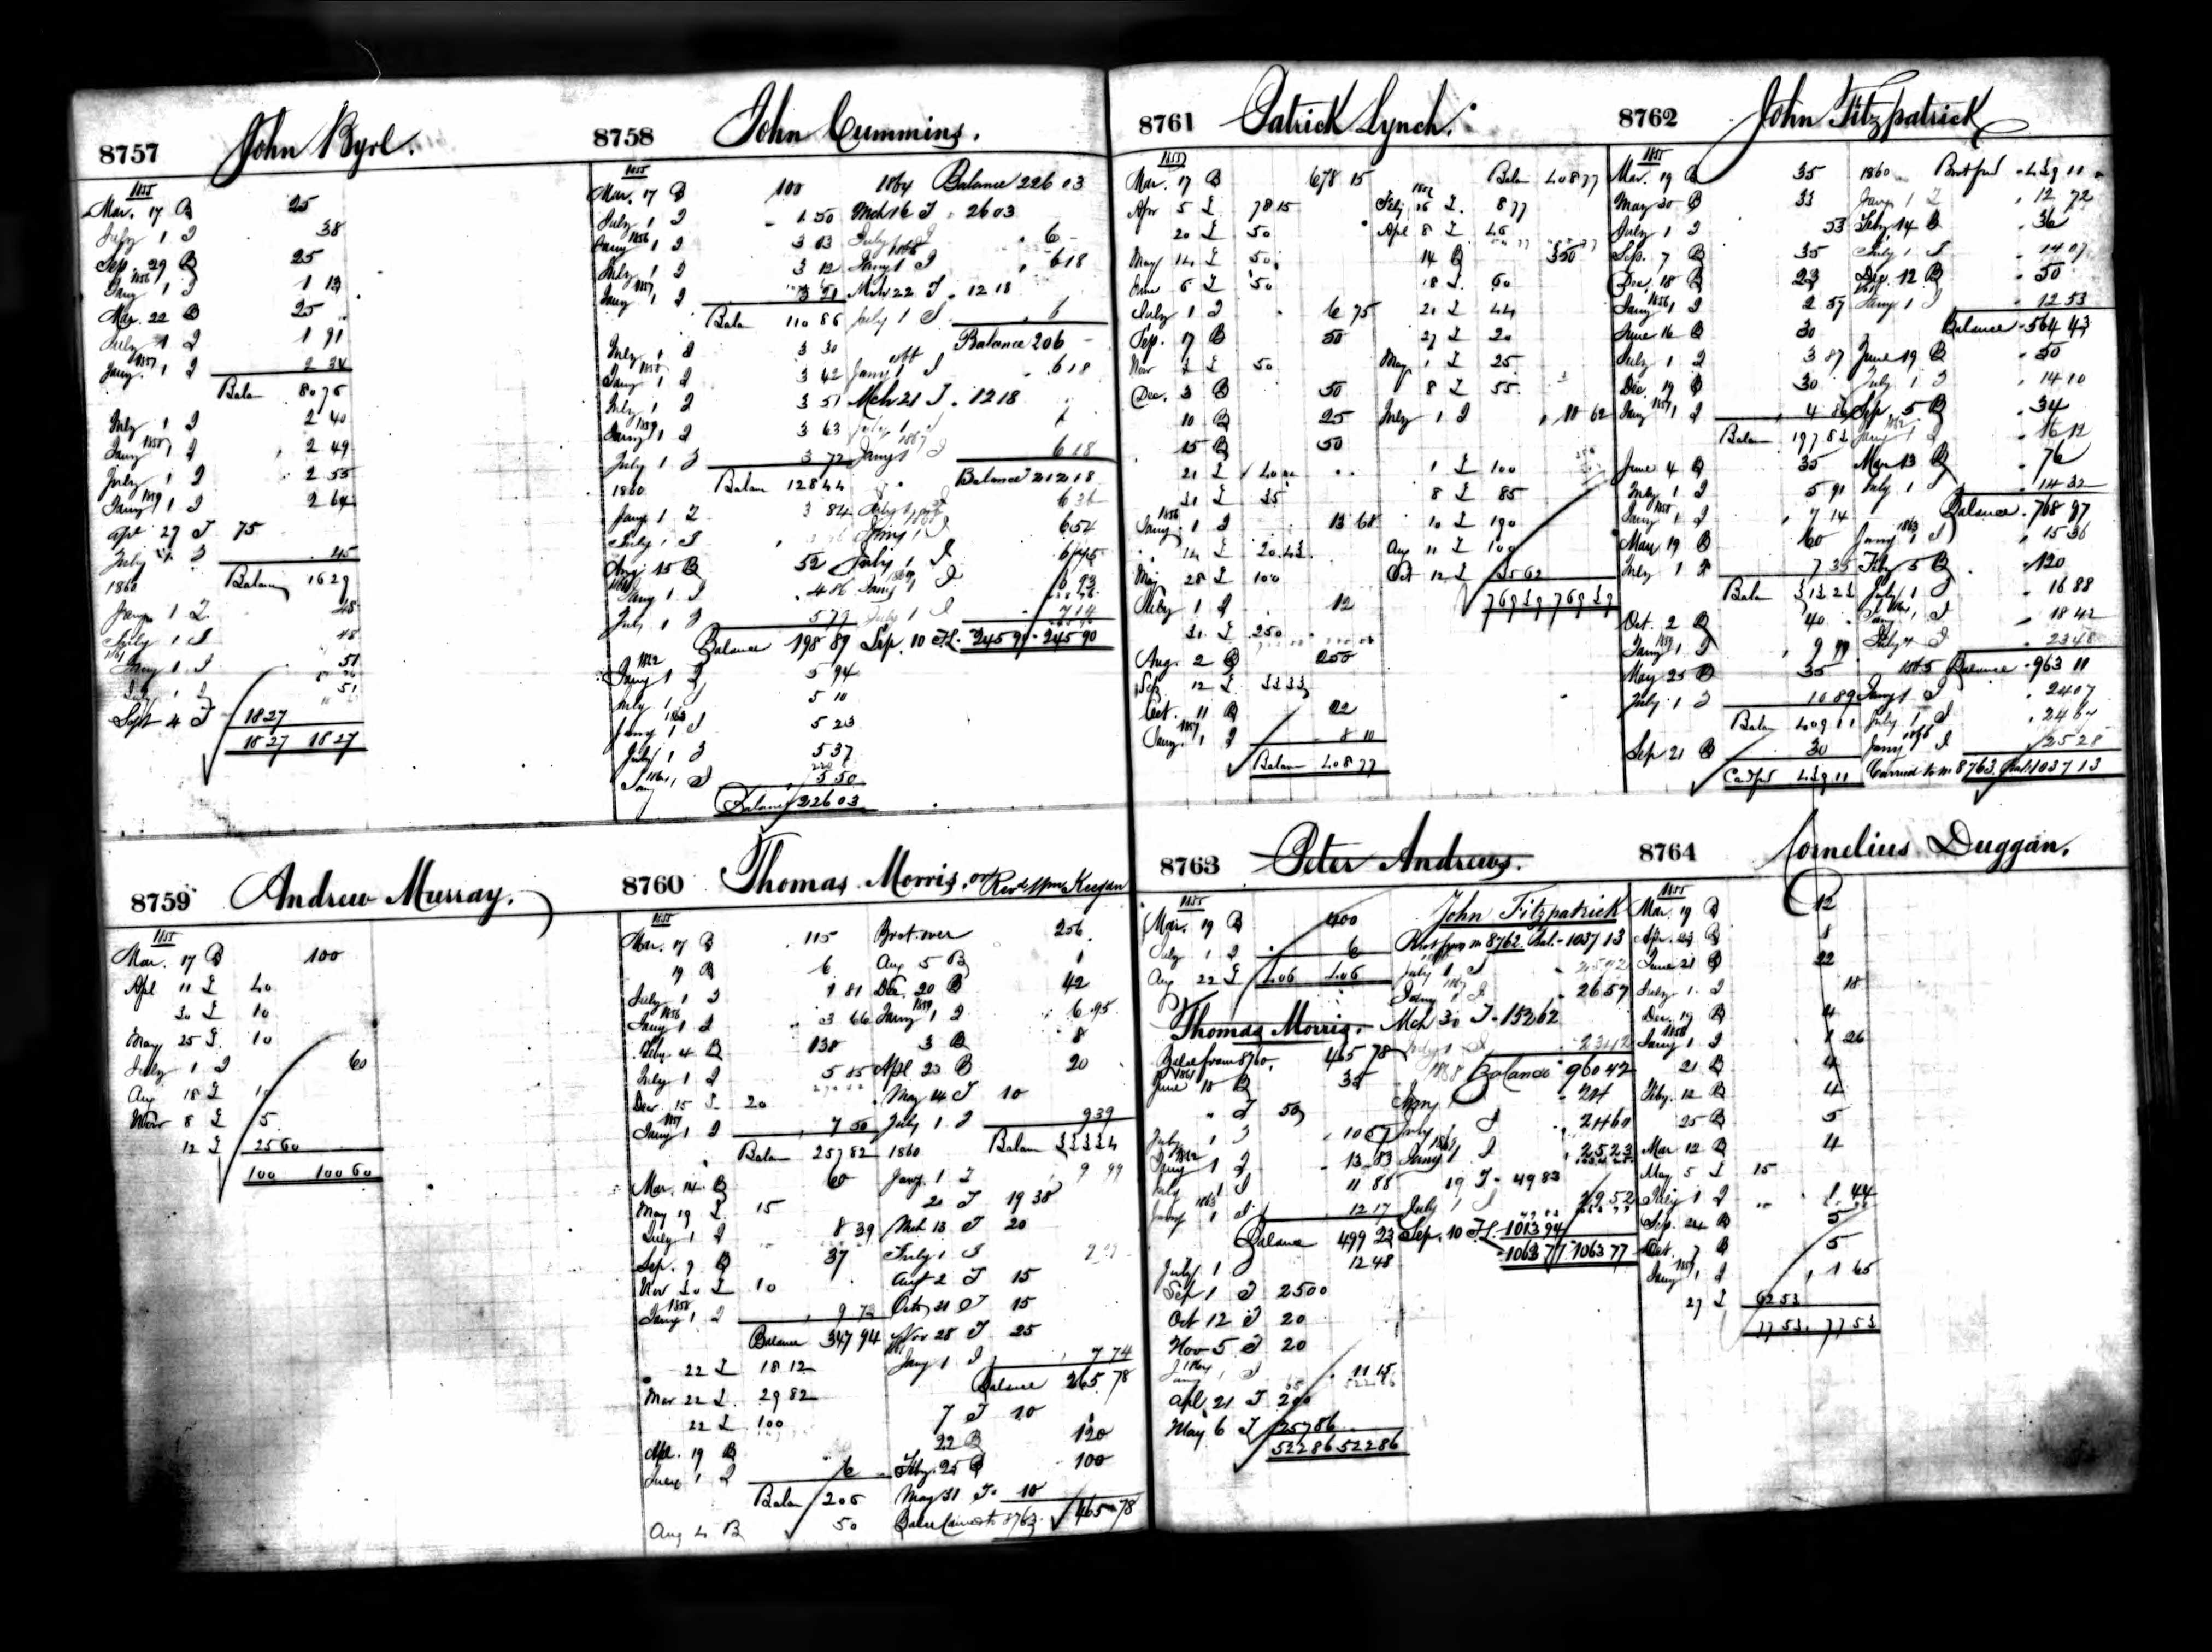 8757 John Byrl.
1855
Mar. 17 B 25
July 1 I 38
Sep. 29 B 25
1856
Jany 1 I 1 13
Mar. 22 B 25
July 1 I 1 91
1857
Jany 1 I 2 34
Balan 80 76
July 1 I 2 40
1858
Jany 1 I 2 49
July 1 I 2 55
1859
Jany 1 I 2 64
Apl 27 T 75
July 1 I 45
1860 Balan 16 29
Jany 1 I 48
July 1 I 48
1861
Jany 1 I 51
July 1 I 51
Sept 4 T 18 27
18 27 18 27
8758 John Cummins.
1855
Mar. 17 B 100
July 1 I 1 50
1856
Jany 1 I 3 03
July 1 I 3 12
1857
Jany 1 I 3 21
Balan 110 86
July 1 I 3 30
1858
Jany 1 I 3 42
July 1 I 3 51
1859
Jany 1 I 3 63
July 1 I 3 72
1860 Balan 128 44
Jany 1 I 3 84
July 1 I
Aug 15 B 52
1861
Jany 1 I 4 86
July 1 I 5 79
Balance 198 89
1862
Jany 1 I 5 94
July 1 I 5 10
1863
Jany 1 I 5 23
July 1 I 5 37
1864
Jany 1 I 5 50
Balance 226 03
1864 Balance 226 03
Mch 16 T 26 03
July 1 I 6
1865
Jany 1 I 6 18
Mch 22 T 12 18
July 1 I 6
Balance 206
1866
Jany 1 I 6 18
Mch 21 T 12 18
July 1 I 6
1867
Jany 1 I 6 18
Balance 212 18
July 1 I 6 36
Jany 1 I 6 54
July 1 I 6 75
Jany 1 I 6 93
July 1 I 7 14
Sep. 10 H. 245 90 245 90
8759 Andrew Murray.
1855
Mar. 17 B 100
Apl 11 L 40
30 L 10
May 25 L 10
July 1 I 60
Aug 18 L 10
Nov 8 L 5
12 L 25 60
100 100 60
8760 Thomas Morris, or Revd Wm Keegan
1855
Mar. 17 B 115
19 B 6
July 1 I 1 81
1856
Jany 1 I 3 66
Feby. 4 B 130
July 1 I 5 85
Dec. 15 L 20
1857
Jany 1 I 7 50
Balan 257 82
Mar. 14 B 60
May 19 L 15
July 1 I 8 39
Sep. 9 B 37
Nov 30 L 10
1858
Jany 1 I 9 73
Balance 347 94
22 L 18 12
Mar 22 L 29 82
22 L 100
Apl. 19 B
July 1 I 6
Balan 206
Aug 4 B 50
Brot. over 256
Aug 5 B 1
Dec. 20 B 42
1859
Jany 1 I 6 95
3 B 8
Apl 23 B 20
May 14 T 10
July 1 I 9 39
1860 Balan 333 34
Jany. 1 I 9 99
2 T 19 38
Mch 13 T 20
July 1 I
Augt 2 T 15
Oct 31 T 15
Nov 28 T 25
1861
Jany 1 I 7 74
Balance 265 78
7 T 10
22 B 120
Feby. 25 B 100
May 31 T 10
Balce Carried to 8763. 465 78
8761 Patrick Lynch.
1855
Mar. 17 B 678 15
Apr 5 L 78 15
20 L 50
May 14 L 50
June 6 L 50
July 1 I 6 75
Sep. 17 B 50
Nov 3 L 50
Dec. 3 B 50
10 B 25
15 B 50
21 L
31 L 35
1856
Jany. 1 I 13 68
14 L 20 43
May 28 L 100
July 1 I 12
31 L 250
Aug. 2 B 250
Sep. 12 L 33 33
Oct. 11 B 22
1857
Jany. 1 I 8 10
Balan 408 77
Balan 408 77
Feby 26 L. 8 77
Apl 8 L 45
14 B 350
18 L 60
21 L 44
27 L 20
May 1 L 25
8 L 55
July 1 I 10 62
1 L 100
8 L 85
10 L 190
Aug 11 L 100
Oct 12 L 35 62
769 39 769 39
8762 John Fitzpatrick
1855
Mar. 19 B 35
May 30 B 33
July 1 I 53
Sep. 7 B 35
Dec. 18 B 23
1856
Jany 1 I 2 57
June 16 B 30
July 1 I 3 87
Dec. 19 B 30
1857
Jany 1 I 4 86
Balan 197 83
June 4 B 35
July 1 I 5 91
1858
Jany 1 I 7 14
May 19 B 60
July 1 I 7 35
Balan 313 23
Oct. 2 B 40
1859
Jany 1 I 9 99
May 25 B 35
July 1 I 10 89
Balan 409 11
Sep 21 B 30
Ca. Ford 439 11
1860 Brot ford 439 11
Jany 1 I 12 72
Feby 14 B 36
July 1 I 14 07
Dec. 12 B 50
1861
Jany 1 I 12 53
Balance 564 43
June 19 B 50
July 1 I 14 10
Sep 5 B 34
1862
Jany 1 I 16 12
Mar 13 B 76
July 1 I 14 32
Balance 768 97
1863
Jany 1 I 15 36
Feby 5 B 120
July 1 I 16 88
1864
Jany 1 I 18 42
July 1 I 23 48
1865 Balance 963 11
Jany 1 I 24 07
July 1 I 24 67
1866
Jany 1 I 25 28
Carried to No 8763. Bal. 1037 13
8763 Peter Andrews.
1855
Mar. 19 B 400
July 1 I 6
Aug 22 L 406 406
Thomas Morris.
Balce from 8760, 465 78
1861
June 18 B 35
" T 50
July 1 I 10 57
1862
Jany 1 I 13 83
July 1 I 11 88
1863
Jany 1 I 12 17
Balance 499 23
July 1 I 12 48
Sep 1 T 25 00
Oct 12 T 20
Nov 5 T 20
1864
Jany 1 I 11 15
Apl. 21 T 200
May 6 T 257 86
522 86 522 86
John Fitzpatrick
Brot from No 8762. Bal. 1037 13
July 1 I 25 92
1867
Jany 1 I 26 57
Mch 30 T 152 62
July 1 I 23 42
1868 Balance 960 42
Jany 1 I 24
July 1 I 24 60
1869
Jany 1 I 25 23
19 T 49 83
July 1 I 29 52
Sep. 10 H. 1013 94
1063 77 1063 77
8764 Cornelius Duggan.
1855
Mar. 19 B 12
Apr. 23 B 8
June 21 B 22
July 1 I 18
Dec. 19 B 4
1856
Jany 1 I 1 26
21 B 4
Feby. 12 B 4
25 B 5
Mar 12 B 4
May 5 L 15
July 1 I 1 44
Sep. 24 B 5
Oct. 7 B 5
1857
Jany 1 I 1 65
27 L 62 53
77 53 77 53